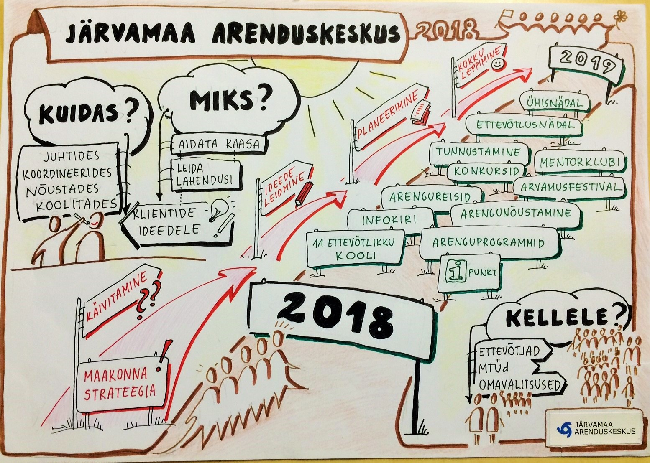 JÄRVAMAA ARENDUSKESKUS 2018
KUIDAS?
JUHTIDES
KOORDINEERIDES
NÕUSTADES
KOOLITADES
MIKS?
AIDATA KAASA
LEIDA
LAHENDUSI
KLIENTIDE
IDEEDELE
MAAKONNA
STRATEEGIA!
KÄIVITAMINE
??
IDEEDE
LEIDMINE
PLANEERIMINE
KOKKU
LEPPIMINE
2019
ÜHISNÄDAL
ETTEVÕTLUSNÄDAL
TUNNUSTAMINE
KONKURSID
MENTORKLUBI
ARVAMUSFESTIVAL
ARENGUREISID
INFOKIRI
ARENGUNÕUSTAMINE
11 ETTEVÕTLIKKU
KOOLI
ARENGUPROGRAMMID
i PUNKT
2018
KELLELE?
ETTEVÕTJAD
MTÜd
OMAVALITSUSED
JÄRVAMAA
ARENDUSKESKUS